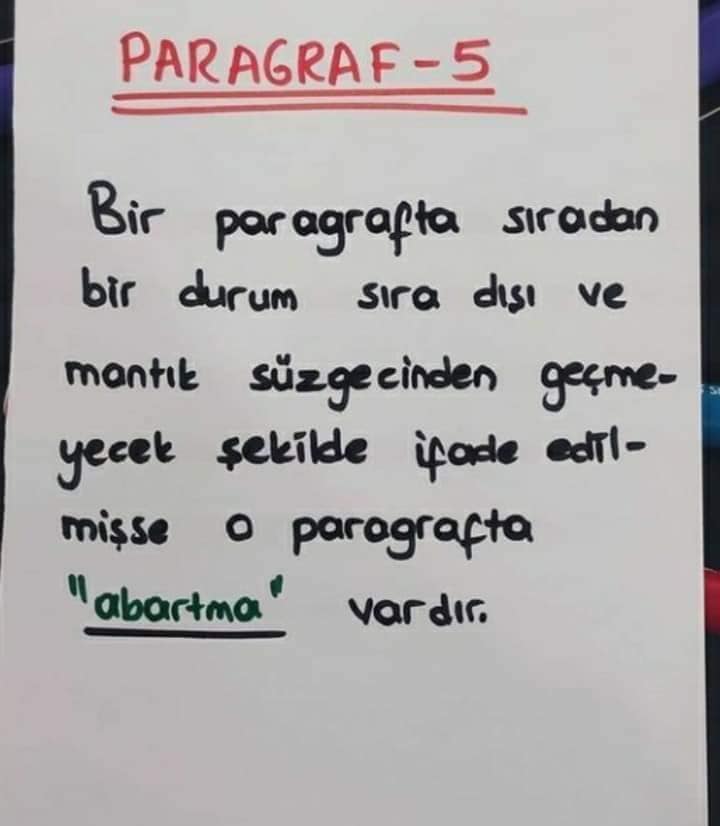 PARAGRAF-5
Bir paragrafta sıradan
bir durum sıra dışı ve
mantık süzgecinden geçme-
yecek şekilde ifade edil-
mişse o paragrafta
"abartma" vardır.